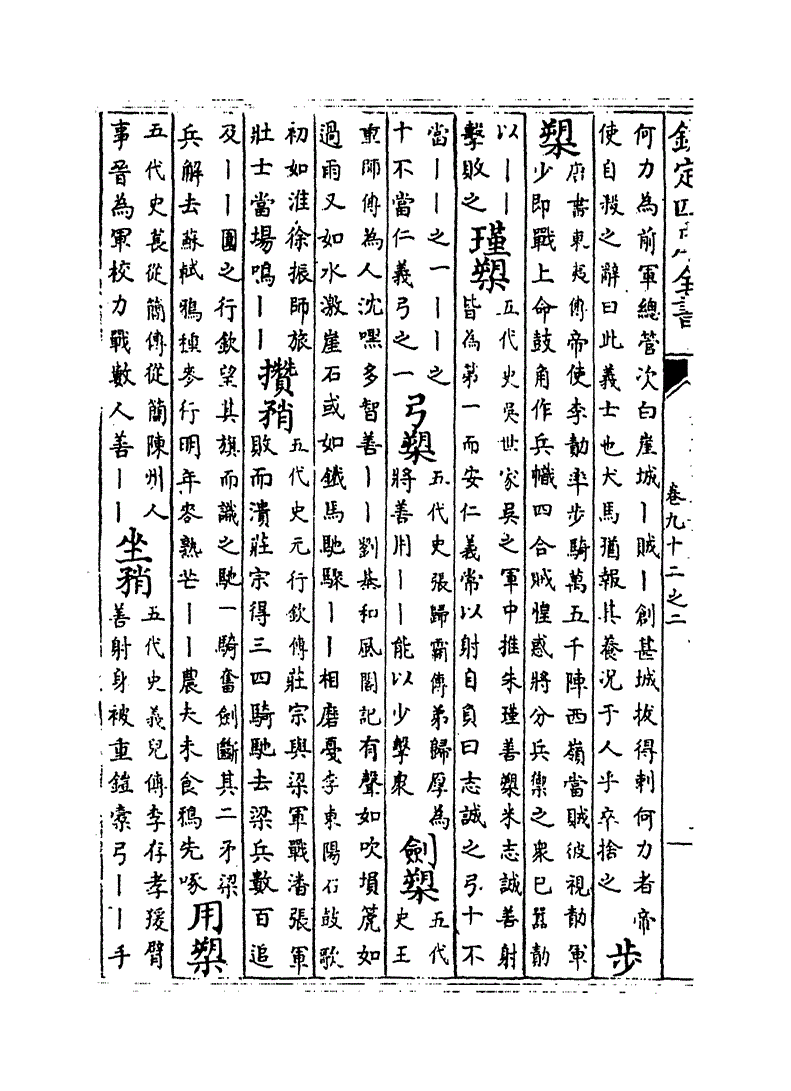 欽定四庫全書
卷九十二之二
何力為前軍總管次白崖城丨賊丨創甚城拔得刺何力者帝
使自殺之辭曰此義士也犬馬猶報其養况于人乎卒捨之
步
槊
唐書東夷傳帝使李勣率步騎萬五千陣西嶺當賊彼視勣軍
少即戰上命鼓角作兵幟四合賊惶惑將分兵禦之衆已囂勣
以丨丨
擊敗之
瑾槊
五代史吳世家吳之軍中推朱瑾善槊米志誠善射
皆為第一而安仁義常以射自負曰志誠之弓十不
當丨丨之一丨丨之
十不當仁義弓之一
弓槊
五代史張歸霸傳弟歸厚為
將善用丨丨能以少擊衆
劍槊
五代
史王
重師傳為人沈嘿多智善丨丨劉基和風閣記有聲如吹塤箎如
過雨又如水激崖石或如鐵馬馳驟丨丨相磨戞李東陽石鼓歌
初如淮徐振師旅
壯士當場鳴丨丨
攢矟
五代史元行欽傳莊宗與梁軍戰潘張軍
敗而潰莊宗得三四騎馳去梁兵數百追
及丨丨圍之行欽望其旗而識之馳一騎奮劍斷其二矛梁
兵解去蘇軾鴉種麥行明年麥熟芒丨丨農夫未食鴉先啄
用槊
五代史萇從簡傳從簡陳州人
事晉為軍校力戰數人善丨丨
坐矟
五代史義兒傳李存孝猨臂
善射身被重鎧櫜弓丨丨手